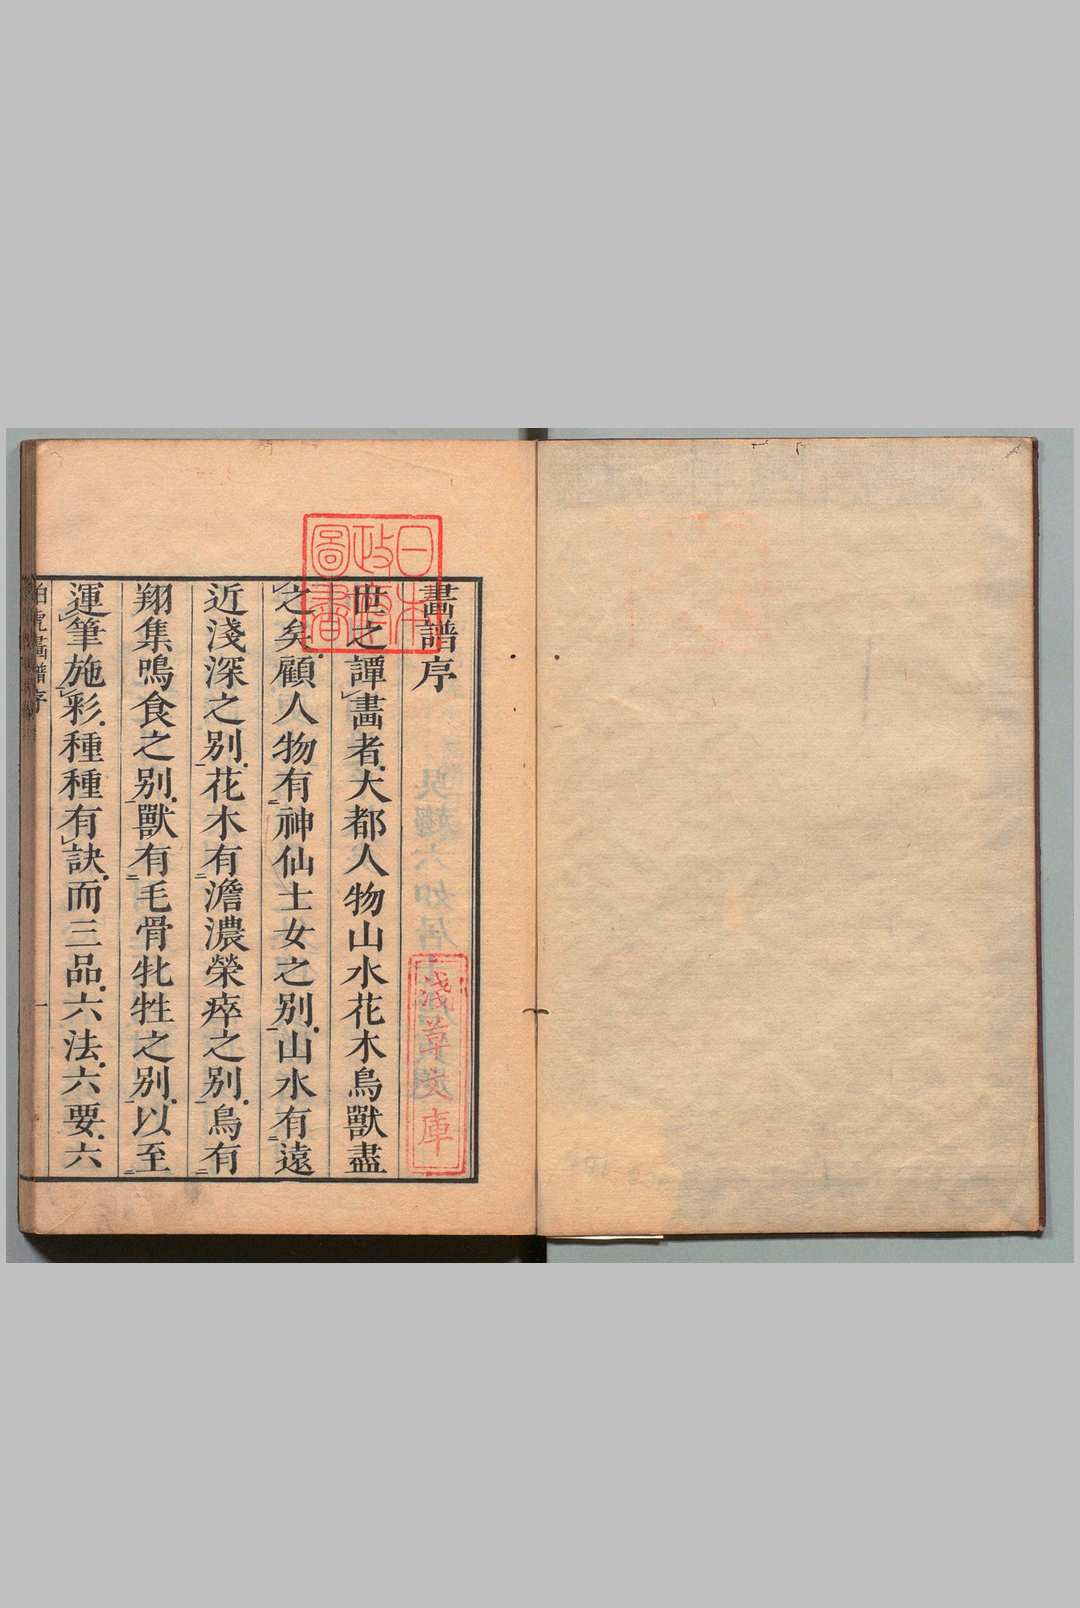 畫譜序
世之譚畫者大都人物山水花木鳥獸盡
之矣顧人物有神仙士女之別山水有遠
近淺深之別花木有澹濃榮瘁之別鳥有
翔集鳴食之別獸有毛骨牝牲之別以至
運筆施彩種種有訣而三品六法六要六
伯虎畫譜序
一
日本
政府
圖書
淺草文庫